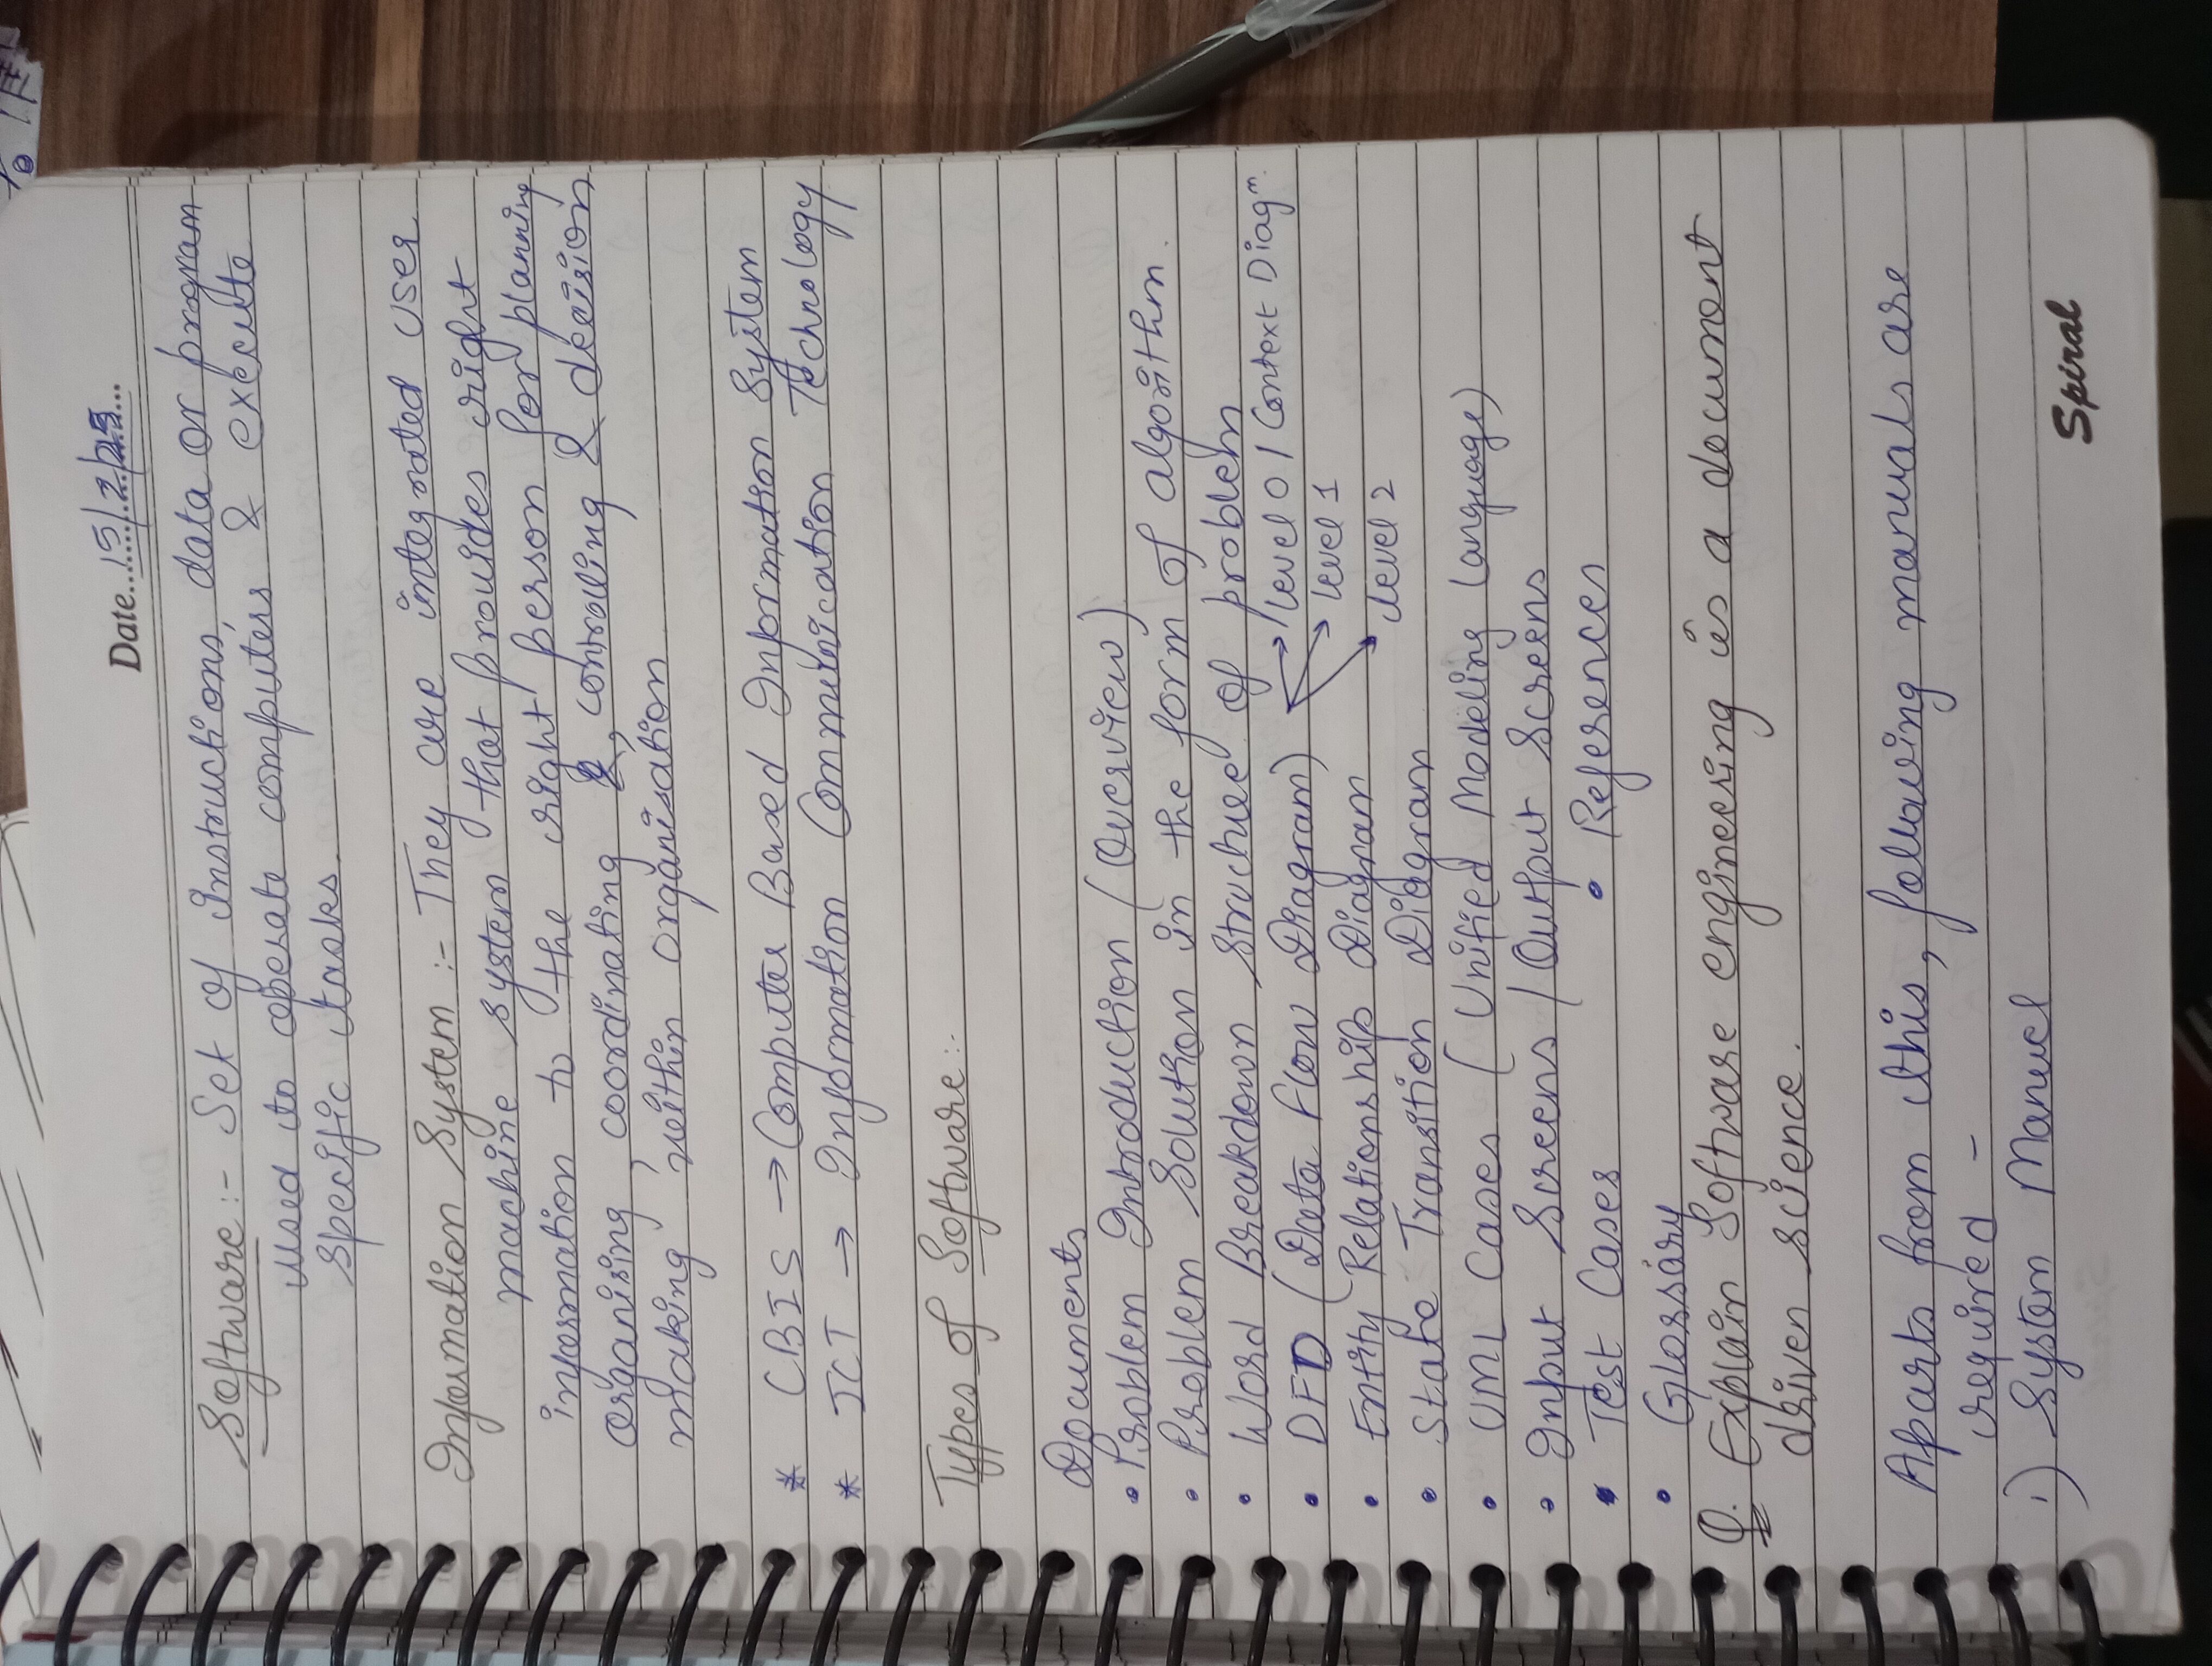 Date 15/2/25
Software :- Set of Instructions, data or program
used to operate computers & execute
specific tasks.
Information System :- They are integrated user
machine system that provides right
information to the right person for planning
organising, coordinating &, controlling & decision
making within organisation
* CBIS → Computer Based Information System
* ICT → Information Communication Technology
Types of Software :-
Documents
• Problem Introduction (Overview)
• Problem Solution in the form of algorithm.
• Word Breakdown Structure of problem
• DFD (Data Flow Diagram) → level 0 / Context Diagm.
→ level 1
• Entity Relationship Diagram → level 2
• State Transition Diagram
• UML Cases (Unified Modeling Language)
• Input Screens / Output Screens
• Test Cases • References
• Glossary
Q. Explain Software engineering is a document
driven science.
Aparts from this, following manuals are
required -
1) System Manuel
Spiral